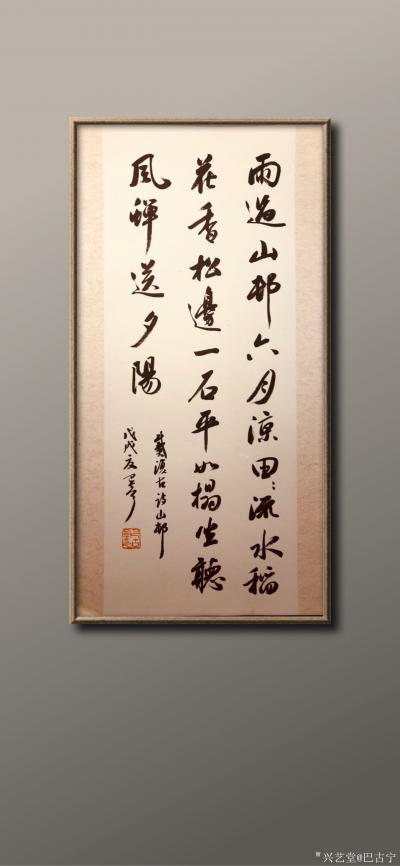 雨過山邨六月涼田〻流水稻
花香松邊一石平如榻坐聽
風蟬送夕陽
戴復古詩山邨
戊戌夏
兴艺堂@巴古宁